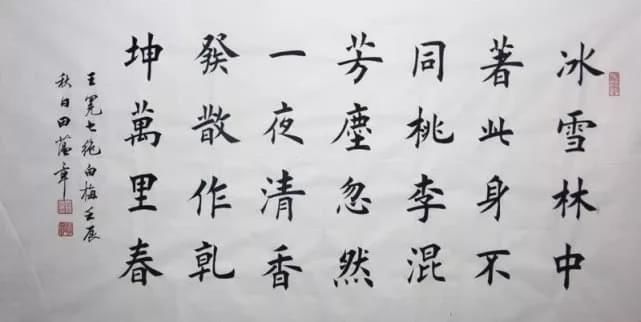 冰雪林中
著此身不
同桃李混
芳塵忽然
一夜清香
發散作乾
坤萬里春
王冕七絕白梅壬辰
秋日田蘊章